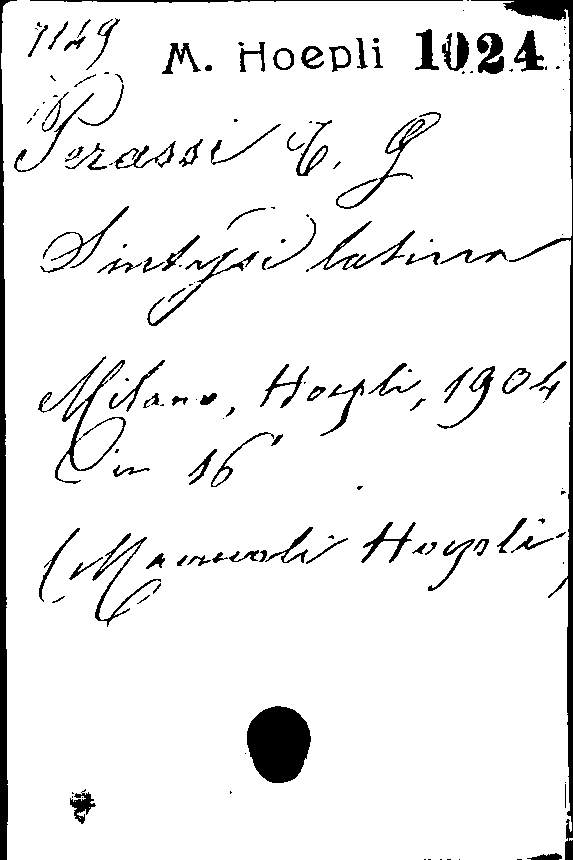 7149 M. Hoepli 1024
Perassi T. G
Sintassi latina
Milano, Hoepli, 1904
in 16°
(Manuali Hoepli)